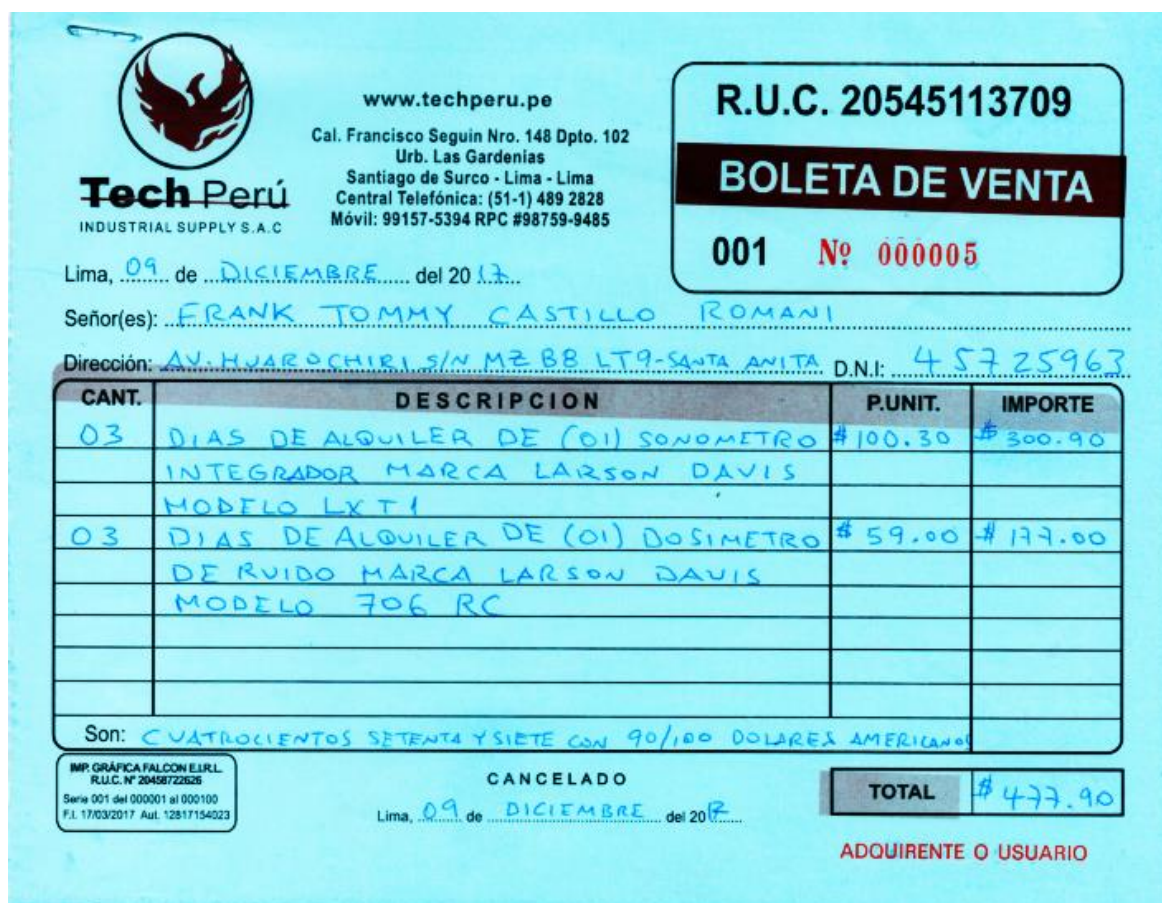 Tech Perú
INDUSTRIAL SUPPLY S.A.C
www.techperu.pe
Cal. Francisco Seguin Nro. 148 Dpto. 102
Urb. Las Gardenias
Santiago de Surco - Lima - Lima
Central Telefónica: (51-1) 489 2828
Móvil: 99157-5394 RPC #98759-9485
R.U.C. 20545113709
BOLETA DE VENTA
001 Nº 000005
Lima, 09 de DICIEMBRE del 2017
Señor(es): FRANK TOMMY CASTILLO ROMANI
Dirección: AV. HUAROCHIRI S/N MZ B8 LT9-SANTA ANITA D.N.I: 45725963
CANT. DESCRIPCION P.UNIT. IMPORTE
03 DIAS DE ALQUILER DE (01) SONOMETRO $100.30 $300.90
INTEGRADOR MARCA LARSON DAVIS
MODELO LXT1
03 DIAS DE ALQUILER DE (01) DOSIMETRO $59.00 $177.00
DE RUIDO MARCA LARSON DAVIS
MODELO 706 RC
Son: CUATROCIENTOS SETENTA Y SIETE CON 90/100 DOLARES AMERICANOS
IMP. GRÁFICA FALCON E.I.R.L.
R.U.C. Nº 20458722626
Serie 001 del 000001 al 000100
F.I. 17/03/2017 Aut. 12817154023
CANCELADO
Lima, 09 de DICIEMBRE del 2017
TOTAL $477.90
ADQUIRENTE O USUARIO